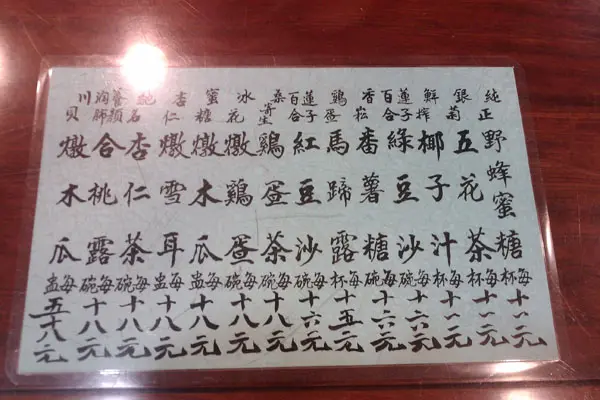 純正野蜂蜜糖每杯十二元
銀菊五花茶每杯十二元
鮮榨椰子汁每杯十二元
蓮子百合綠豆沙每碗十六元
香菘番薯糖每碗十六元
鷄蛋馬蹄露每杯十五元
蓮子百合紅豆沙每碗十六元
桑寄生鷄蛋茶每碗十八元
冰花燉鷄蛋每碗十八元
蜜糖燉木瓜每盅十八元
杏仁燉雪耳每盅十八元
杏仁茶每碗十八元
養顏合桃露每碗十八元
川貝燉木瓜每盅五十八元